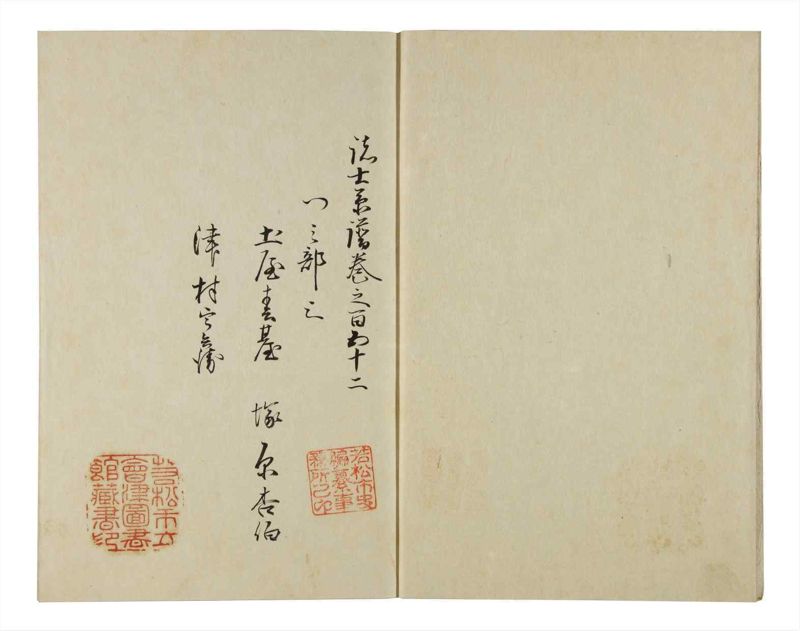 諸士系譜巻之百五十二
つ之部三
土屋春基 塚原杏伯
津村
若松市史編纂事務所之印
若松市立會津圖書館藏書印